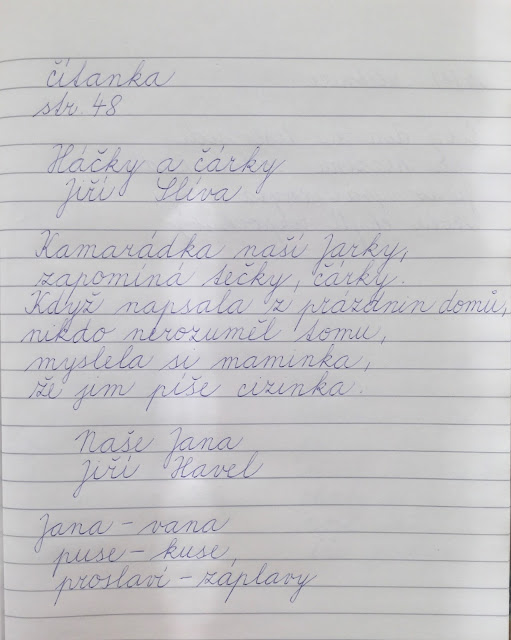 čítanka
str. 48
Háčky a čárky
Jiří Slíva
Kamarádka naší Jarky,
zapomíná tečky, čárky.
Když napsala z prázdnin domů,
nikdo nerozuměl tomu,
myslela si maminka,
že jim píše cizinka.
Naše Jana
Jiří Havel
Jana - vana
puse - kuse,
proslaví - záplavy